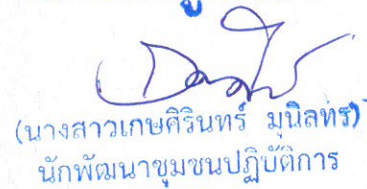 (นางสาวเกษศิรินทร์ มุนิลทร)
นักพัฒนาชุมชนปฏิบัติการ